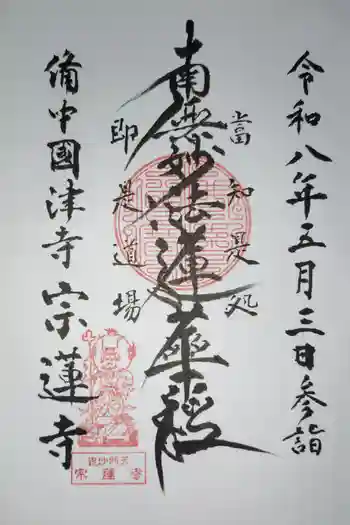 令和八年五月三日参詣
當知是処
南無妙法蓮華経
即是道場
備中國津寺宗蓮寺
宗蓮寺